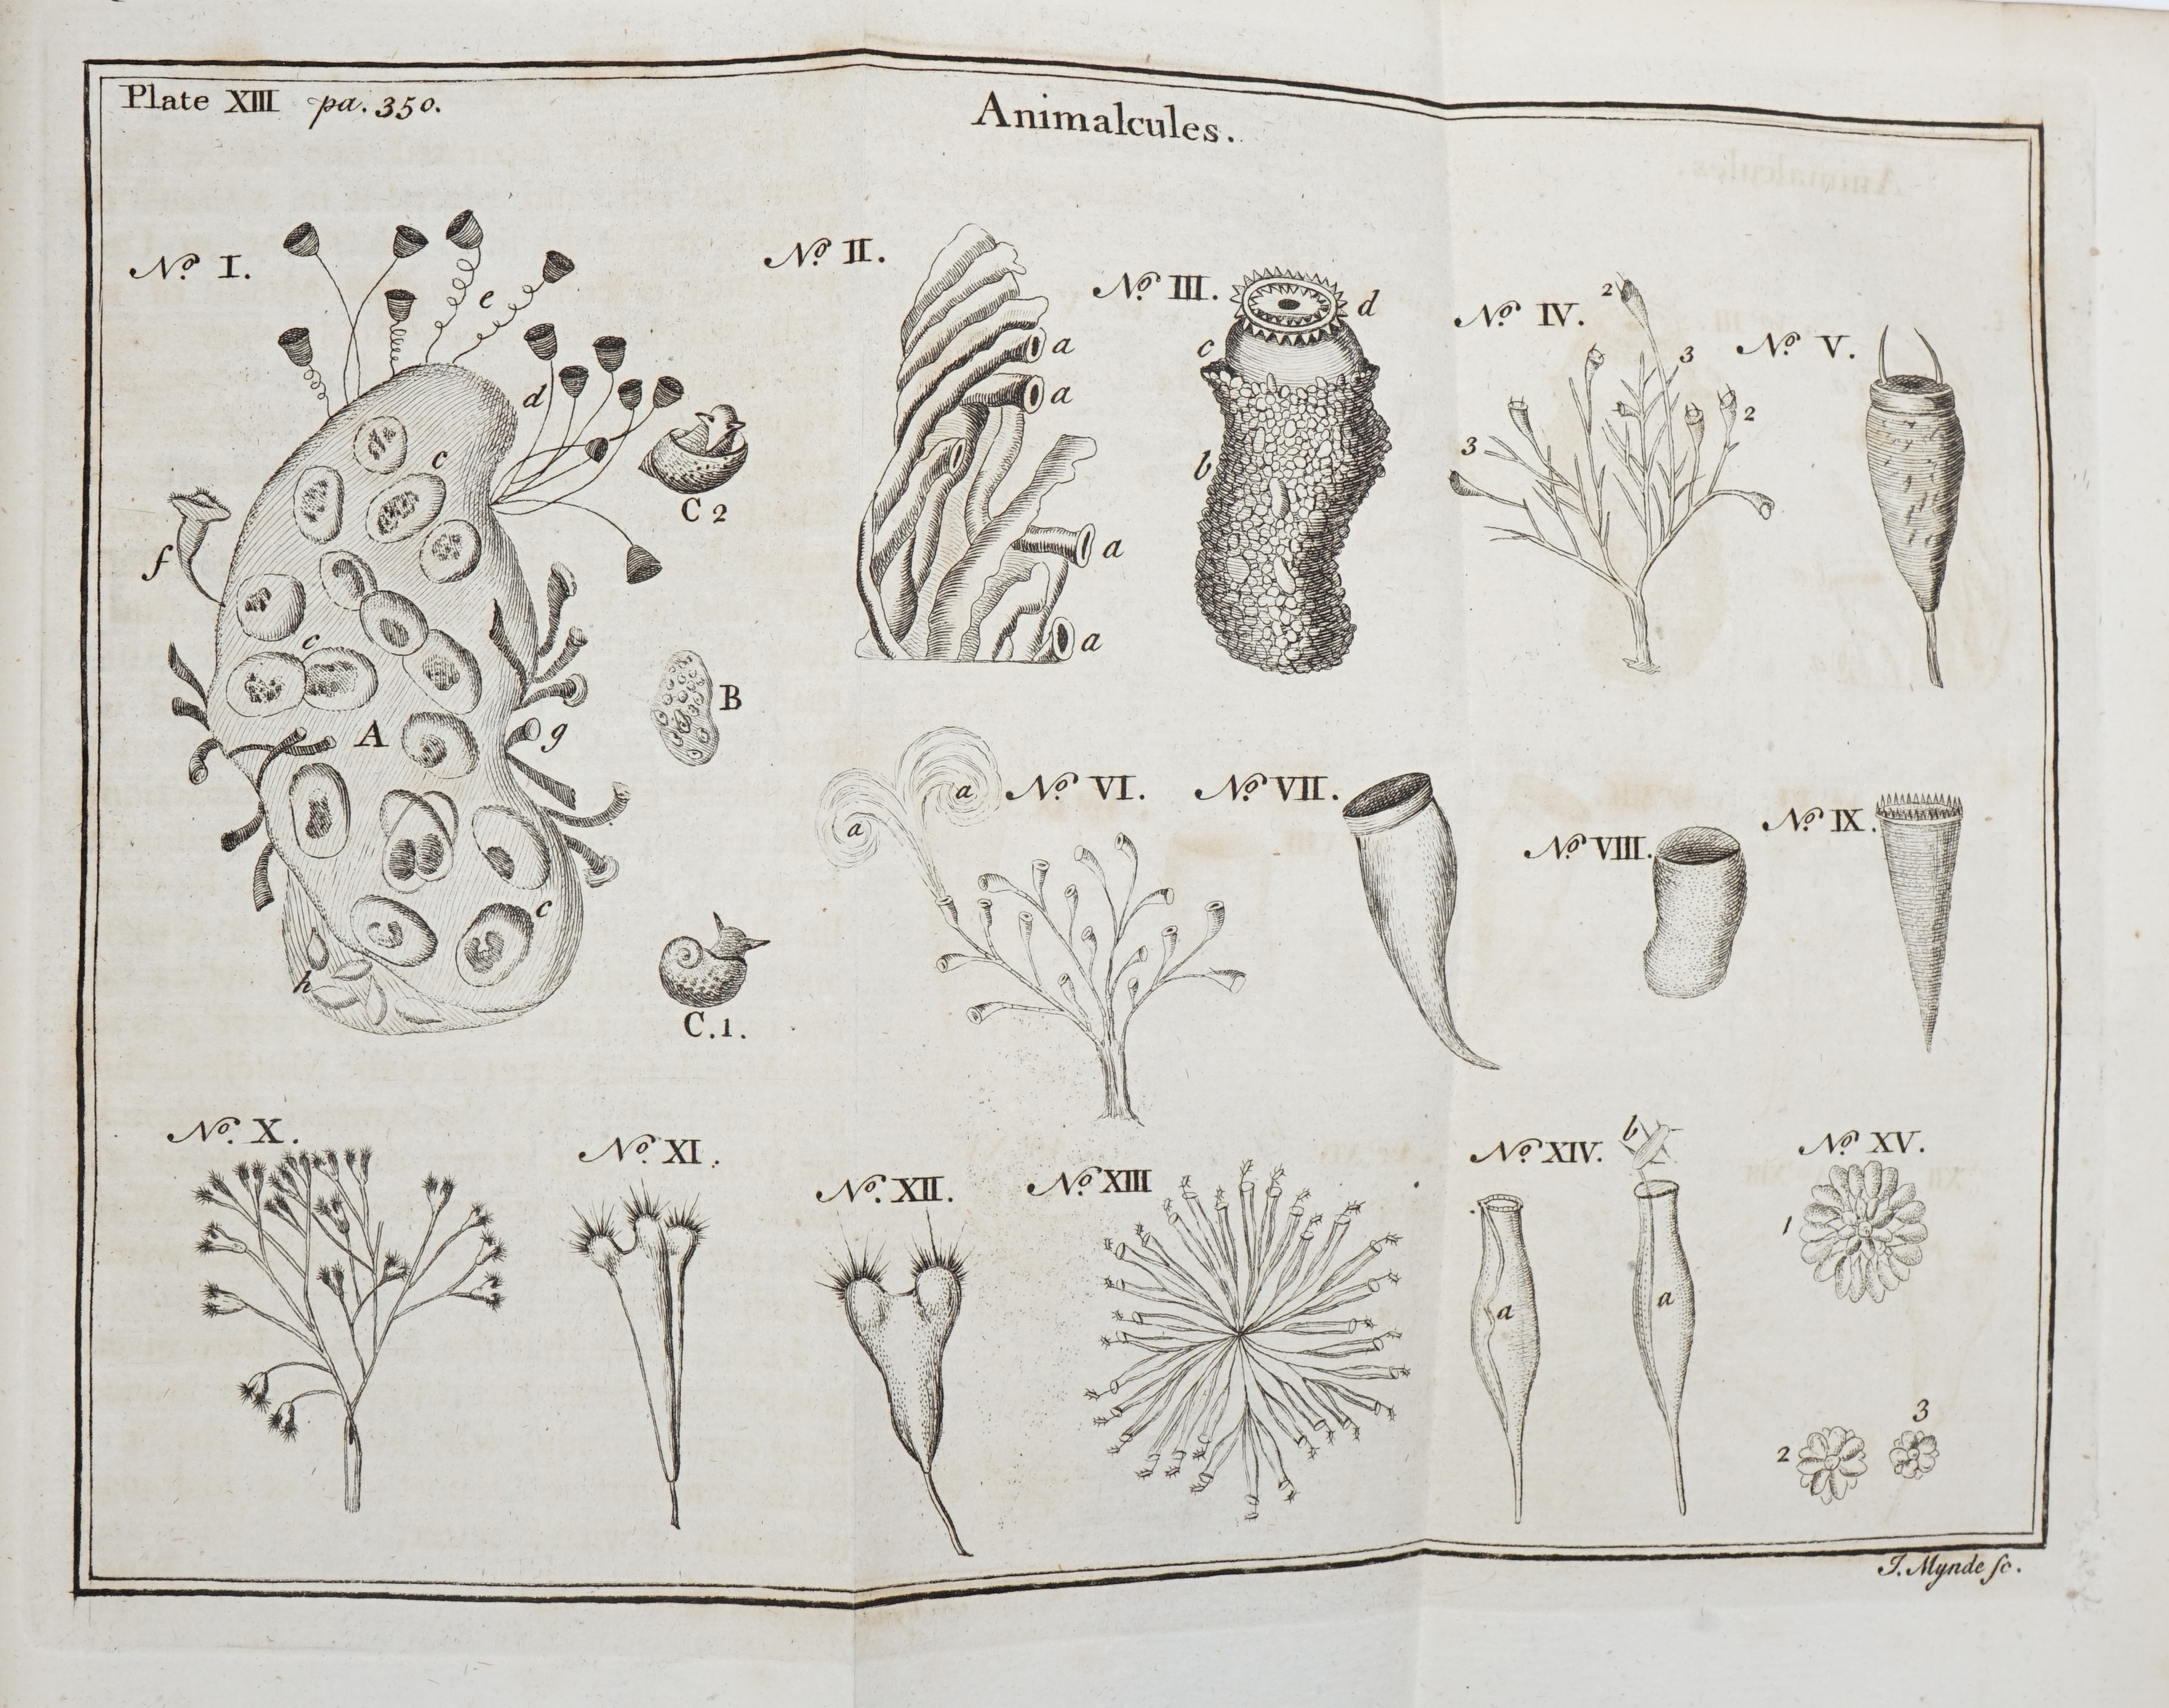 Plate XIII pa. 350.
Animalcules.
No. I.
e
d
c
C 2
f
c
A
g
B
c
h
C.1.
No. II.
a
a
a
a
No. III.
d
c
b
No. IV.
2
3
2
3
No. V.
No. VI.
a
a
No. VII.
No. VIII.
No. IX.
No. X.
No. XI.
No. XII.
No. XIII
No. XIV.
b
a
a
No. XV.
1
2
3
J. Mynde sc.